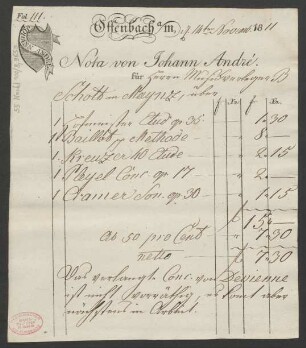 Offenbach a/m, d. 14ten Novem. 1811
Nota von Johann André.
für Herrn Musikverleger B
Schott in Maynz, über
fl. Xr.
1 op 36 1.30
11 Baillot Methode 8.-
1 Kreutzer 40 Etude 2.15
1 Pleyel Conc. op 17 2.-
1 Cramer Son. op. 30 1.15
f 15.-
ab 50 pro Cent 7.30
netto f 7.30
Das verlangte Conc. von Devienne
ist nicht vorräthig, u komt aber
nächstens in Arbeit.